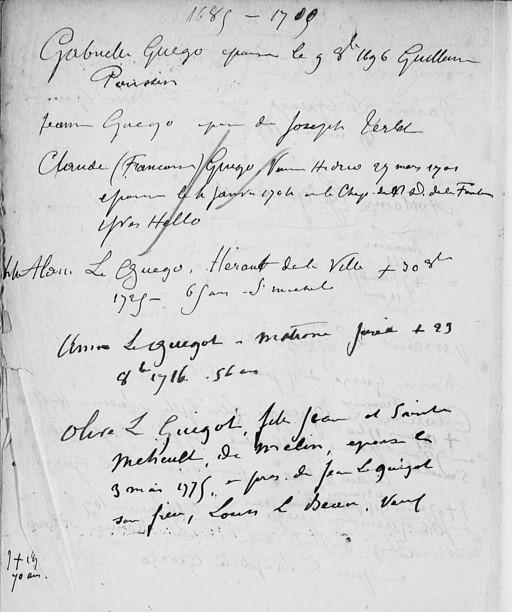 1685 - 1709
Gabrielle Guego epouse le 9 8bre 1696 Guillaume
Poirssin
Jeanne Guego epouse de Joseph
Claude (Francoise) Guego, 27 mars 1701
epouse le Janvier 1704 en la Chap. de N. D. de la
Yves Hello
Alain Le Guego. Héraut de la Ville + 30 8bre
1725 - 65 ans St michel
Anne Le Guegot - matrone Jurée + 23
8bre 1716. 56 ans
Olive Le Guégot, fille Jean et Sainte
de Melin, epouse le
3 mai 1775. en pres. de Jean Le Guégot
son frère, Louis Le
70 ans.